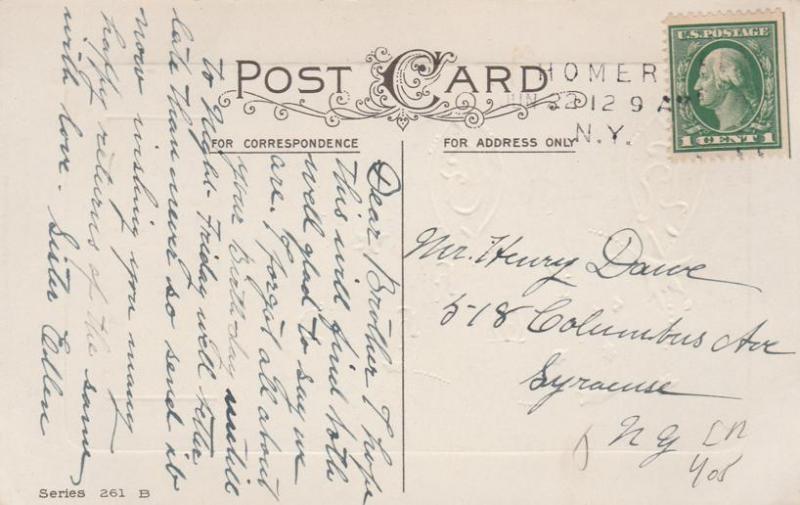 POST CARD
FOR CORRESPONDENCE
FOR ADDRESS ONLY
HOMER
JUN 22 12 9 A
N.Y.
U.S. POSTAGE
1 CENT 1
Dear Brother I hope
this will find both
well glad to say we
are. I forgot all about
your Birthday untill
to Night. Friday will better
late than never so send it
now wishing you many
happy returns of the same
with love. Sister Edlen
Mr. Henry Dawe
518 Columbus Ave
Syracuse
N Y
Series 261 B